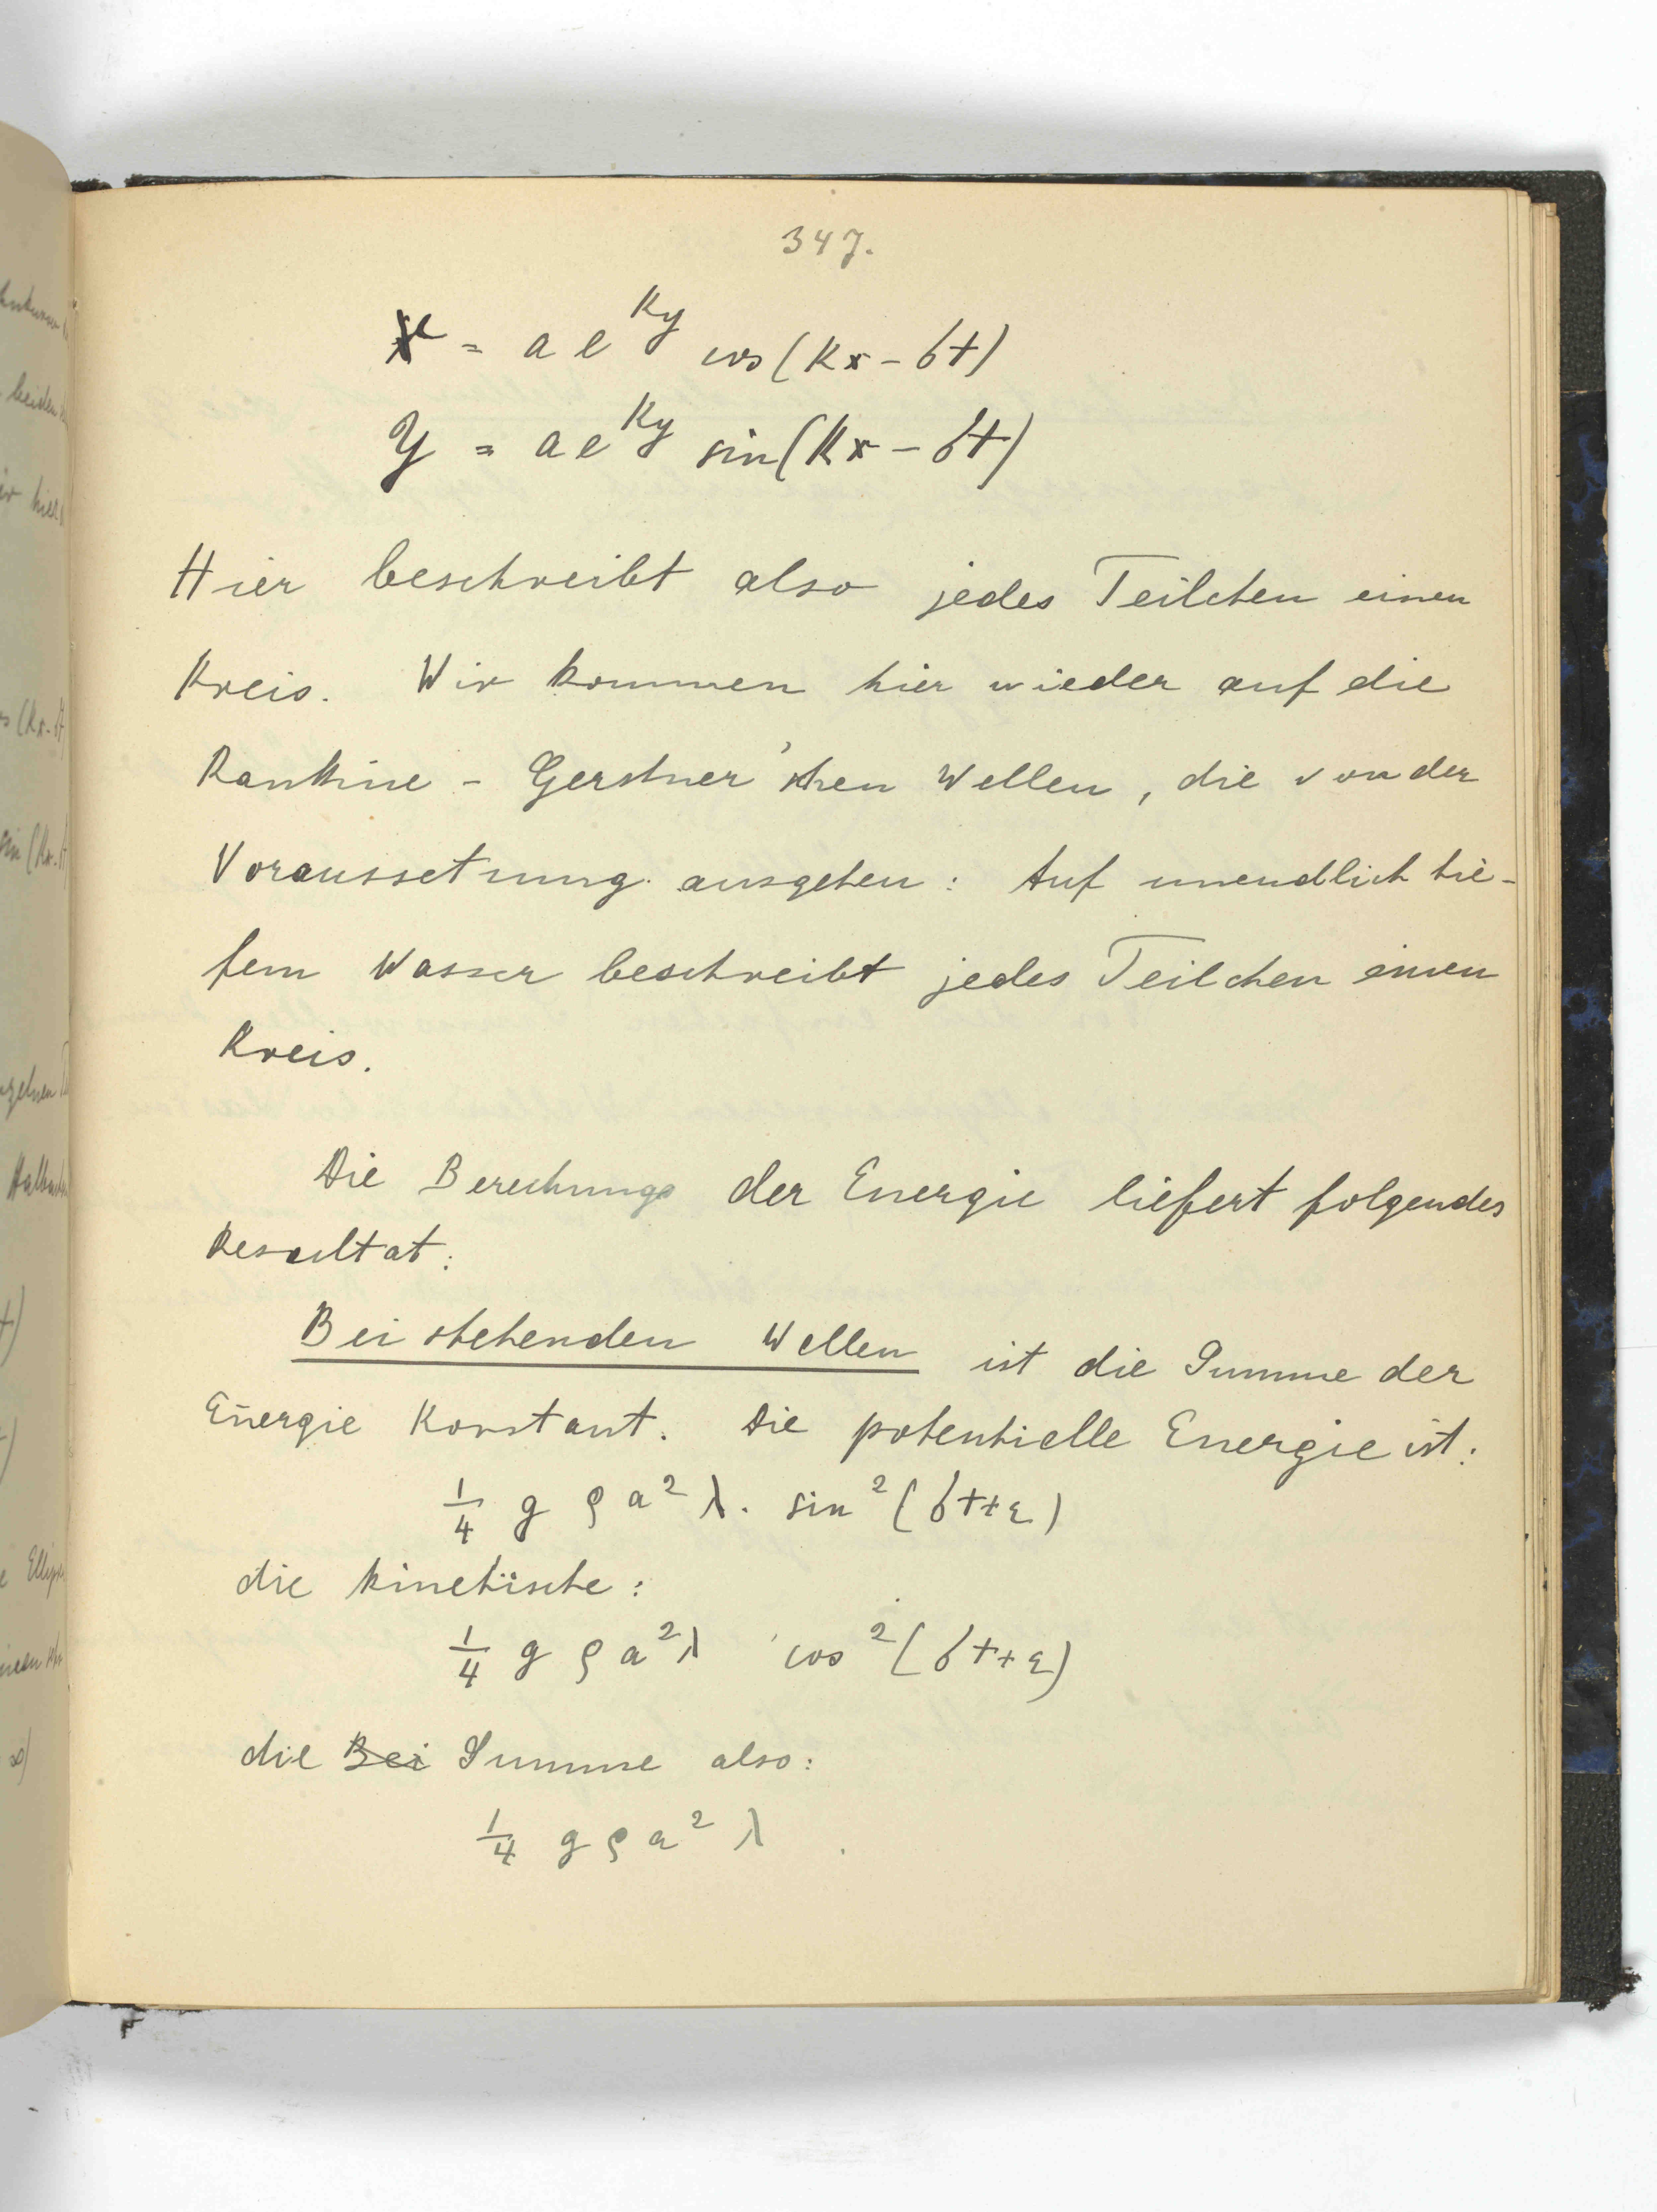 347.
x = a e^{ky} cos(kx - σt)
y = a e^{ky} sin(kx - σt)
Hier beschreibt also jedes Teilchen einen
Kreis. Wir kommen hier wieder auf die
Rankine - Gerstner'schen Wellen, die von der
Voraussetzung ausgehen: Auf unendlich tie-
fem Wasser beschreibt jedes Teilchen einen
Kreis.
Die Berechnung der Energie liefert folgendes
Resultat:
Bei stehenden Wellen ist die Summe der
Energie konstant. Die potentielle Energie ist:
1/4 g ρ a² λ. sin² (σt+ε)
die kinetische:
1/4 g ρ a² λ cos² (σt+ε)
die Bei Summe also:
1/4 g ρ a² λ.